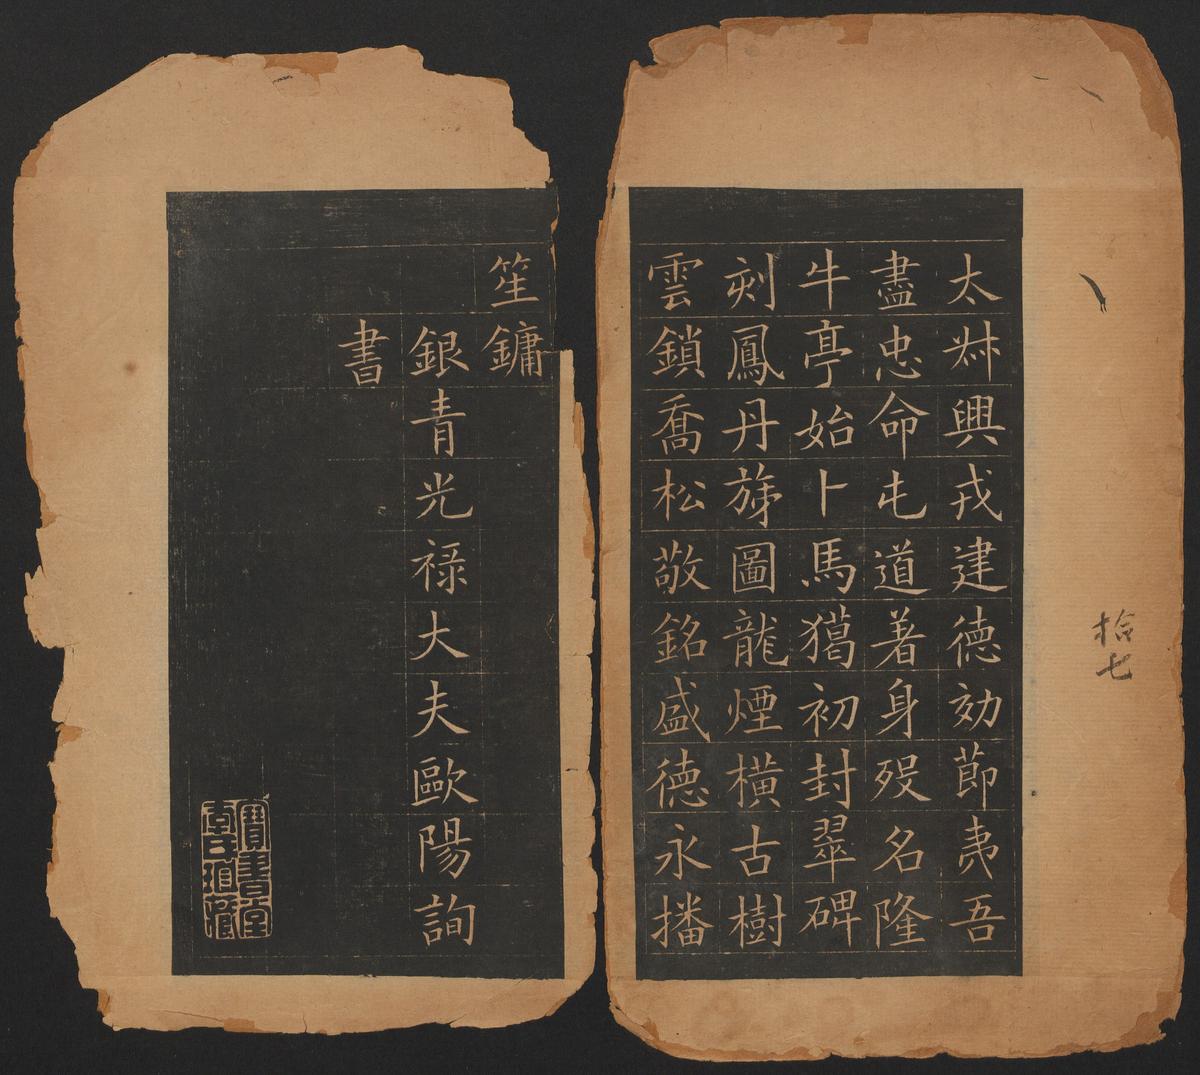 太㚬興戎建德効莭夷吾
盡忠命屯道著身歿名隆
牛亭始卜馬獦初封翠碑
刻鳳丹旐圖龍煙橫古樹
雲鎖喬松敬銘盛德永播
笙鏞
銀青光祿大夫歐陽詢
書
寶書堂
拾七